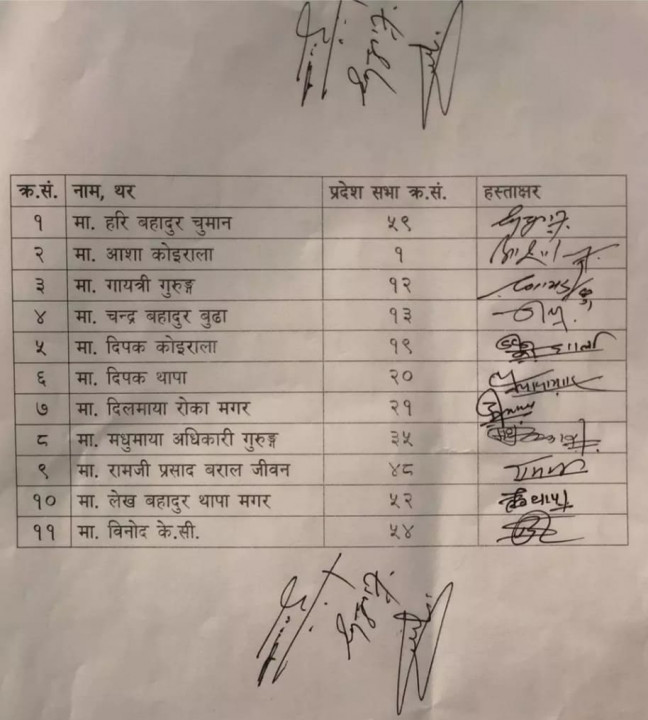 क्र.सं. नाम, थर प्रदेश सभा क्र.सं. हस्ताक्षर
१ मा. हरि बहादुर चुमान ५९
२ मा. आशा कोइराला १
३ मा. गायत्री गुरुङ्ग १२
४ मा. चन्द्र बहादुर बुढा १३
५ मा. दिपक कोइराला १९
६ मा. दिपक थापा २०
७ मा. दिलमाया रोका मगर २१
८ मा. मधुमाया अधिकारी गुरुङ्ग ३५
९ मा. रामजी प्रसाद बराल जीवन ४८
१० मा. लेख बहादुर थापा मगर ५२
११ मा. विनोद के.सी. ५४